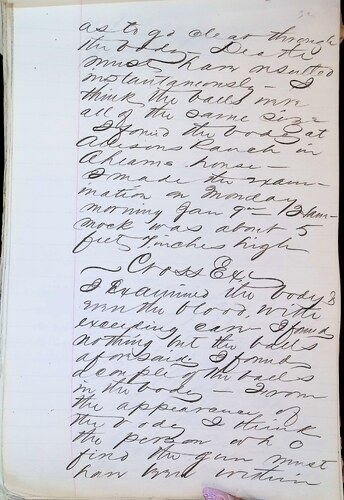 as to go clear through
the body – Death
must have resulted
instantaneously – I
think the balls were
all of the same size
I found the body at
Adisons Ranch in
house –
I made the exam-
ination on Monday
morning Jan 9th –
mock was about 5
feet inches high
Cross Ex.
I Examined the body &
the blood, with
exceeding care I found
nothing but the balls
aforesaid, I found
a couple of the balls
in the body – From
the appearance of
the body I think
the person who
fired the gun must
have been within